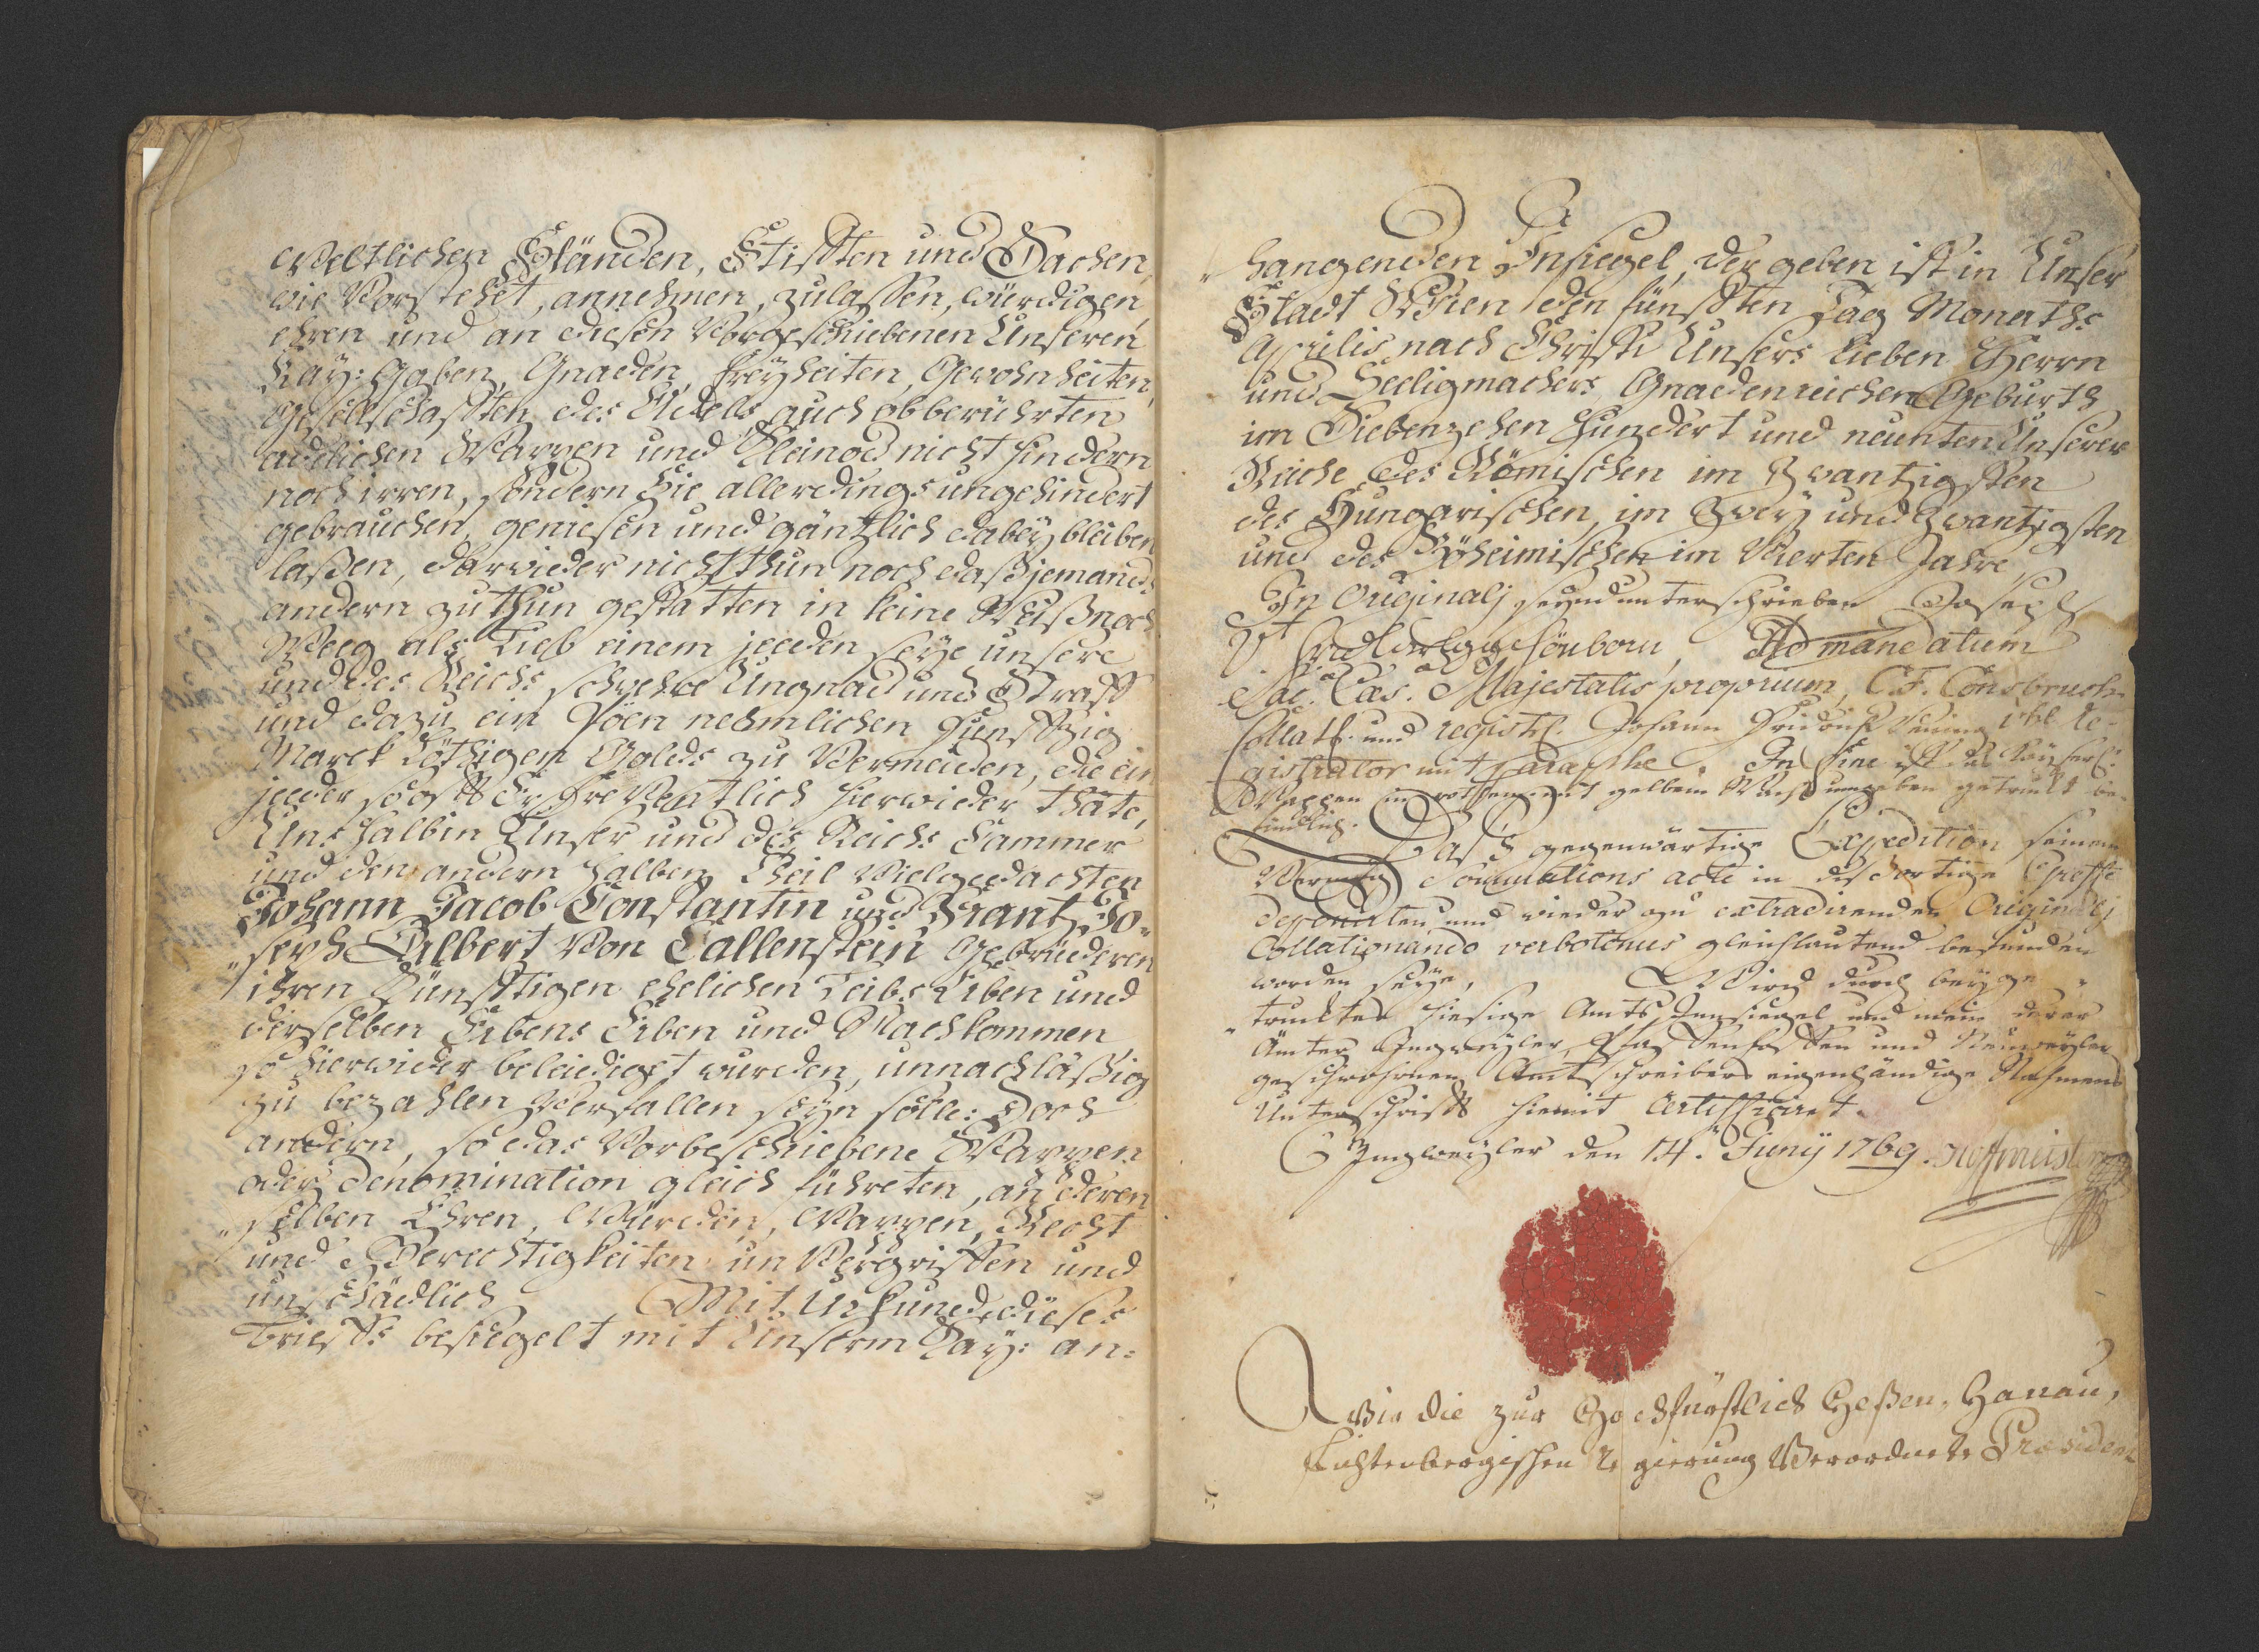 Weltlichen Ständen, Stifften und Sachen,
wie Vorstehet, annehmen, zulassen, würdigen,
ehren und an diesen Vorgeschriebenen Unseren
Kay: Gaben, Gnaden, Freyheiten, Gewohnheiten,
Gesellschafften des Adels auch obberührten
adelichen Wappen und Kleinod nicht hindern
noch irren, sondern Sie allerdings ungehindert
gebrauchen, geniesen und gäntzlich dabey bleiben
laßen, darwieder nicht thun noch daß jemands
andern zu thun gestatten in keine Weiß noch
Weeg als Lieb einem jeeden seye unsere
und des Reichs schwehre Ungnad und Straff
und dazu ein Pöen nehmlichen Funfftzig
Marck Löthigen Golds zu Vermeiden, die ein
jeeder so offt Er freventlich hierwieder thäte,
Uns halbin Unser und des Reichs Cammer
und den andern halben Theil Vielgedachten
Johann Jacob Constantin und Frantz Jo-
„seph Albert Von Callenstein Gebrüderen
ihren Künfftigen ehelichen Leibs Erben und
derselben Erbens Erben und Nachkommen,
so hierwider beleidiget wurden, unnachläßig
zu bezahlen Verfallen seyn solle: Doch
andern, so das Vorbeschriebene Wappen
oder denomination gleich führeten, an deren
„selben Ehren, Würden, Wappen, Recht
und Gerechtigkeiten unVergriffen und
unschädlich Mit Urkund dieses
Brieffs besiegelt mit Unserm Kay: an=
„hangenden Insiegel, der geben ist in Unser
Stadt Wien den fünfften Tag Monaths
Aprilis nach Christi Unsers lieben Herrn
und Seeligmachers Gnadenreichen Geburth
im Siebenzehen hundert und neunten Unserer
Reiche des Römischen im Zwantzigsten
des Hungarischen, im Zwey und Zwantzigsten
und des Böheimischen im Vierten Jahre,
In Originalj seynd unterschrieben Joseph
Vt Schönborn, Ad mandatum
Sac. Cæs. Majestatis proprium, C. F. Consbruch
Collat. und regist. Johann Re-
gistrator mit paraphe. In fine ist das Kayserl:
Wappen in rothem mit gelbem Wachs umgeben getruckt be-
findlich.
Daß gegenwärtige Expedition seinem
Vermög Sommations acte in disortige Greffe
deponirten und wieder zu extradirenden Originalj
Collationando verbotenus gleichlautend befunden
worden seye, Wird durch beyge„
„trucktes hiesige Amts Innsiegel und mein derer
Ämter Ingweyler, Pfaffenhoffen und Neuweyler
geschwohrnen Amtschreibers eigenhändige Nahmens
Unterschrifft hiemit certifficiret.
Ingweyler den 14. Juny 1769. Hoffmeister
Wir die zur Hochfürstlich Heßen, Hanau,
Lichtenbergischen Regierung Verordnete President